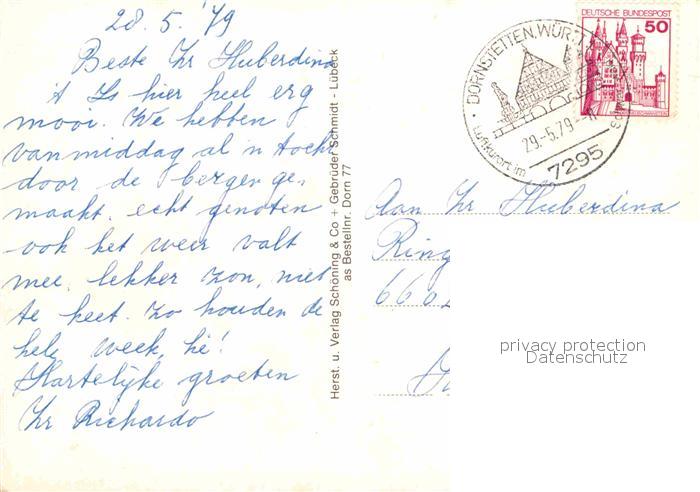 28. 5. '79
Beste Zr Huberdina
't Is hier heel erg
mooi. We hebben
vanmiddag al 'n tocht
door de bergen ge-
maakt, echt genoten
ook het weer valt
mee, lekker zon, niet
te heet. Zo houden de
hele week, hè!
Hartelijke groeten
Zr Richardo
Herst. u. Verlag Schöning & Co + Gebrüder Schmidt - Lübeck
as Bestellnr. Dorn 77
DEUTSCHE BUNDESPOST
50
DORNSTETTEN, WÜRTT
29.-5.79.-
Luftkurort im
7295
Aan Zr Huberdina
Ring
660
privacy protection
Datenschutz